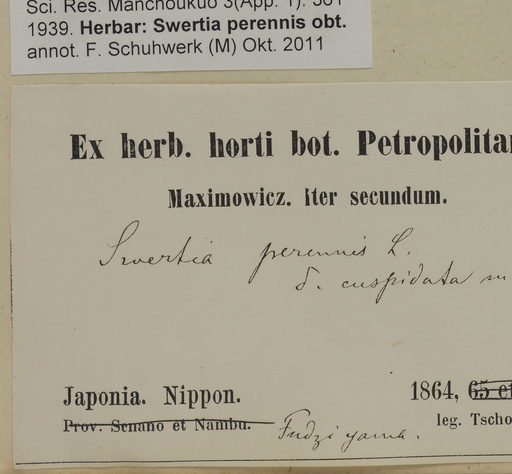 Sci. Res. Manchoukuo 3(App. 1): 301
1939. Herbar: Swertia perennis obt.
annot. F. Schuhwerk (M) Okt. 2011
Ex herb. horti bot. Petropolitan
Maximowicz. Iter secundum.
Swertia perennis L.
δ. cuspidata m
Japonia. Nippon. 1864, 65 et
Prov: Senano et Nambu. leg. Tscho
Fudzi yama.